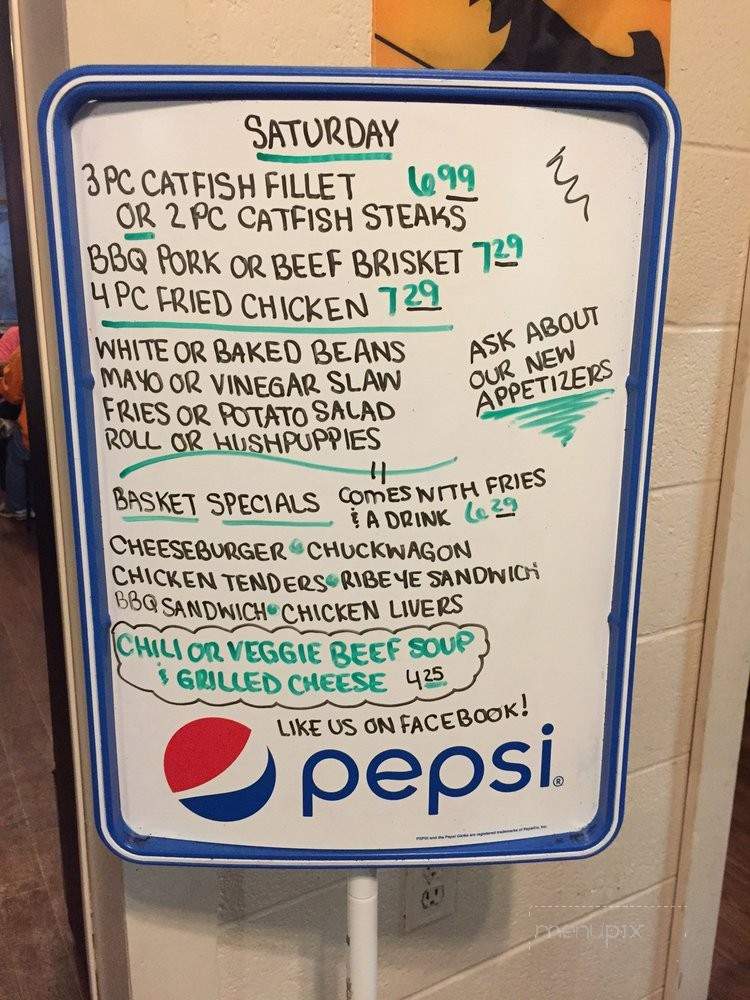 SATURDAY
3 PC CATFISH FILLET 6 99
OR 2 PC CATFISH STEAKS
BBQ PORK OR BEEF BRISKET 7 29
4 PC FRIED CHICKEN 7 29
WHITE OR BAKED BEANS
MAYO OR VINEGAR SLAW
FRIES OR POTATO SALAD
ROLL OR HUSHPUPPIES
ASK ABOUT
OUR NEW
APPETIZERS
BASKET SPECIALS COMES WITH FRIES
& A DRINK 6 29
CHEESEBURGER • CHUCKWAGON
CHICKEN TENDERS • RIBEYE SANDWICH
BBQ SANDWICH • CHICKEN LIVERS
CHILI OR VEGGIE BEEF SOUP
& GRILLED CHEESE 4 25
LIKE US ON FACEBOOK!
pepsi®
menupix